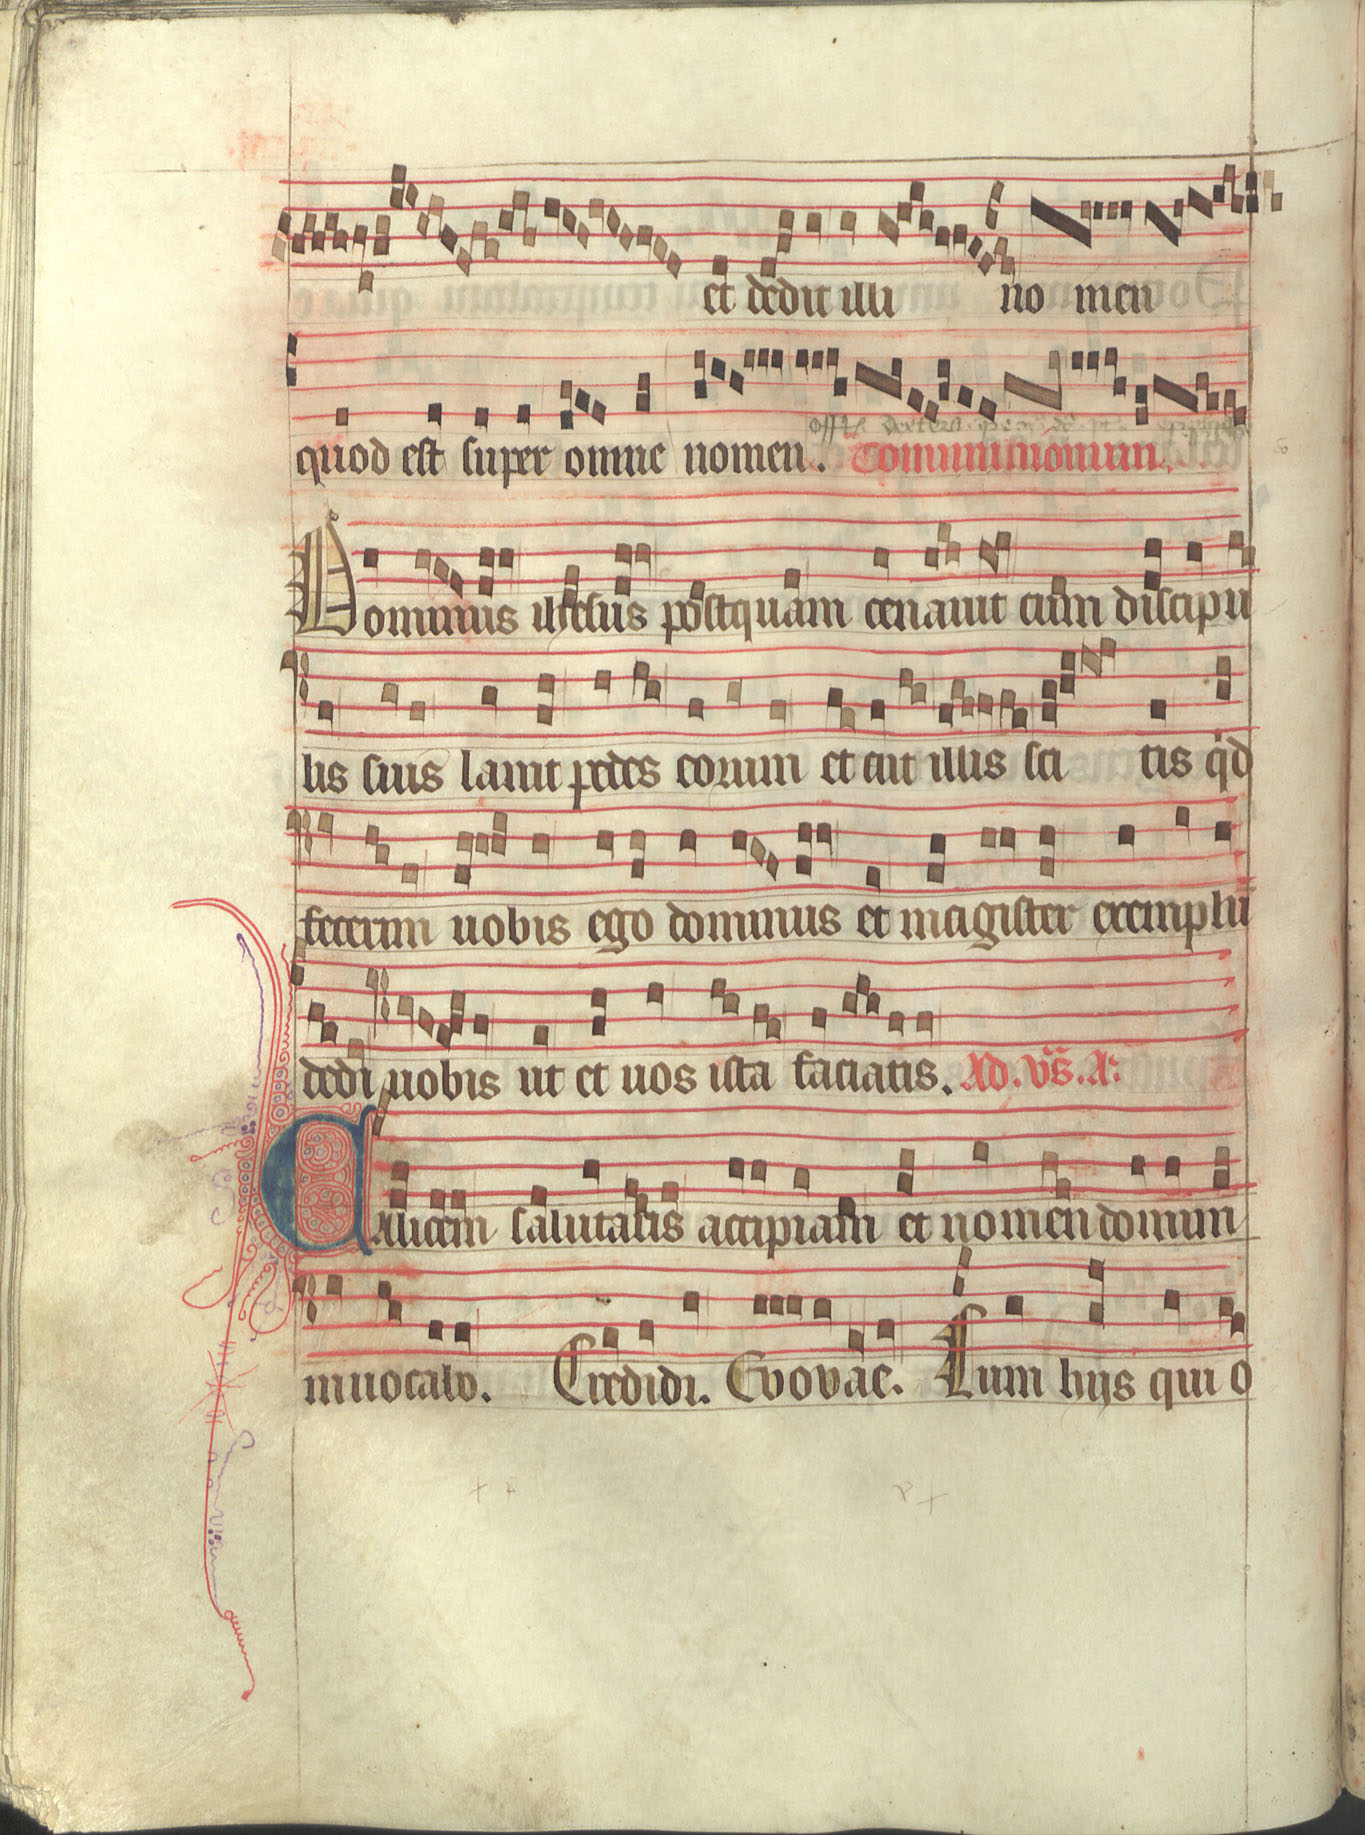 et dedit illi no men
quod est super omne nomen. Communionem.
Dominus ihesus postquam cenauit cum discipu
lis suis lauit pedes eorum et ait illis sci tis qd
fecerim uobis ego dominus et magister exemplu
dedi uobis ut et uos ita faciatis. Ad. vs. A.
Calicem salutaris accipiam et nomen domini
inuocabo. Credidi. Evovae. Cum hijs qui o